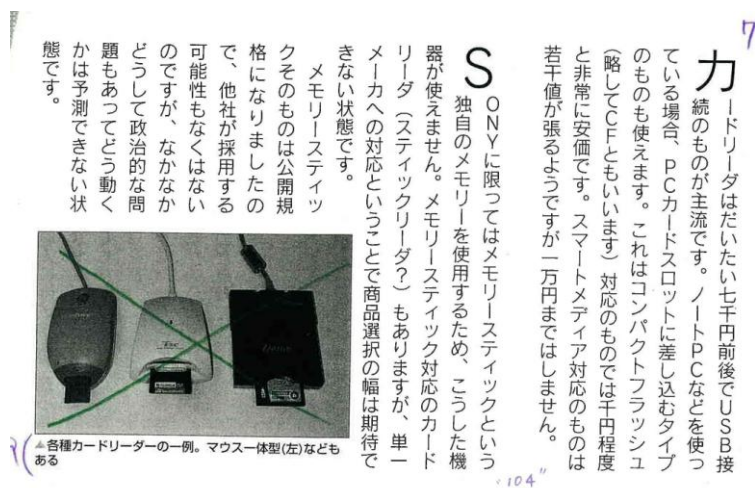 7
カードリーダはだいたい七千円前後でUSB接
続のものが主流です。ノートPCなどを使っ
ている場合、PCカードスロットに差し込むタイプ
のものも使えます。これはコンパクトフラッシュ
(略してCFともいいます)対応のものでは千円程度
と非常に安価です。スマートメディア対応のものは
若干値が張るようですが一万円まではしません。
SONYに限ってはメモリースティックという
独自のメモリーを使用するため、こうした機
器が使えません。メモリースティック対応のカード
リーダ(スティックリーダ?)もありますが、単一
メーカへの対応ということで商品選択の幅は期待で
きない状態です。
メモリースティッ
クそのものは公開規
格になりましたの
で、他社が採用する
可能性もなくはない
のですが、なかなか
どうして政治的な問
題もあってどう動く
かは予測できない状
態です。
▲各種カードリーダーの一例。マウス一体型(左)なども
ある
"104"